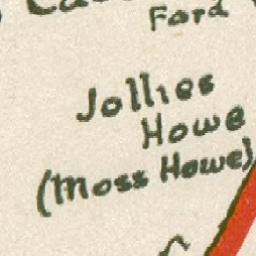 Ford
Jollies
Howe
(Moss Howe)